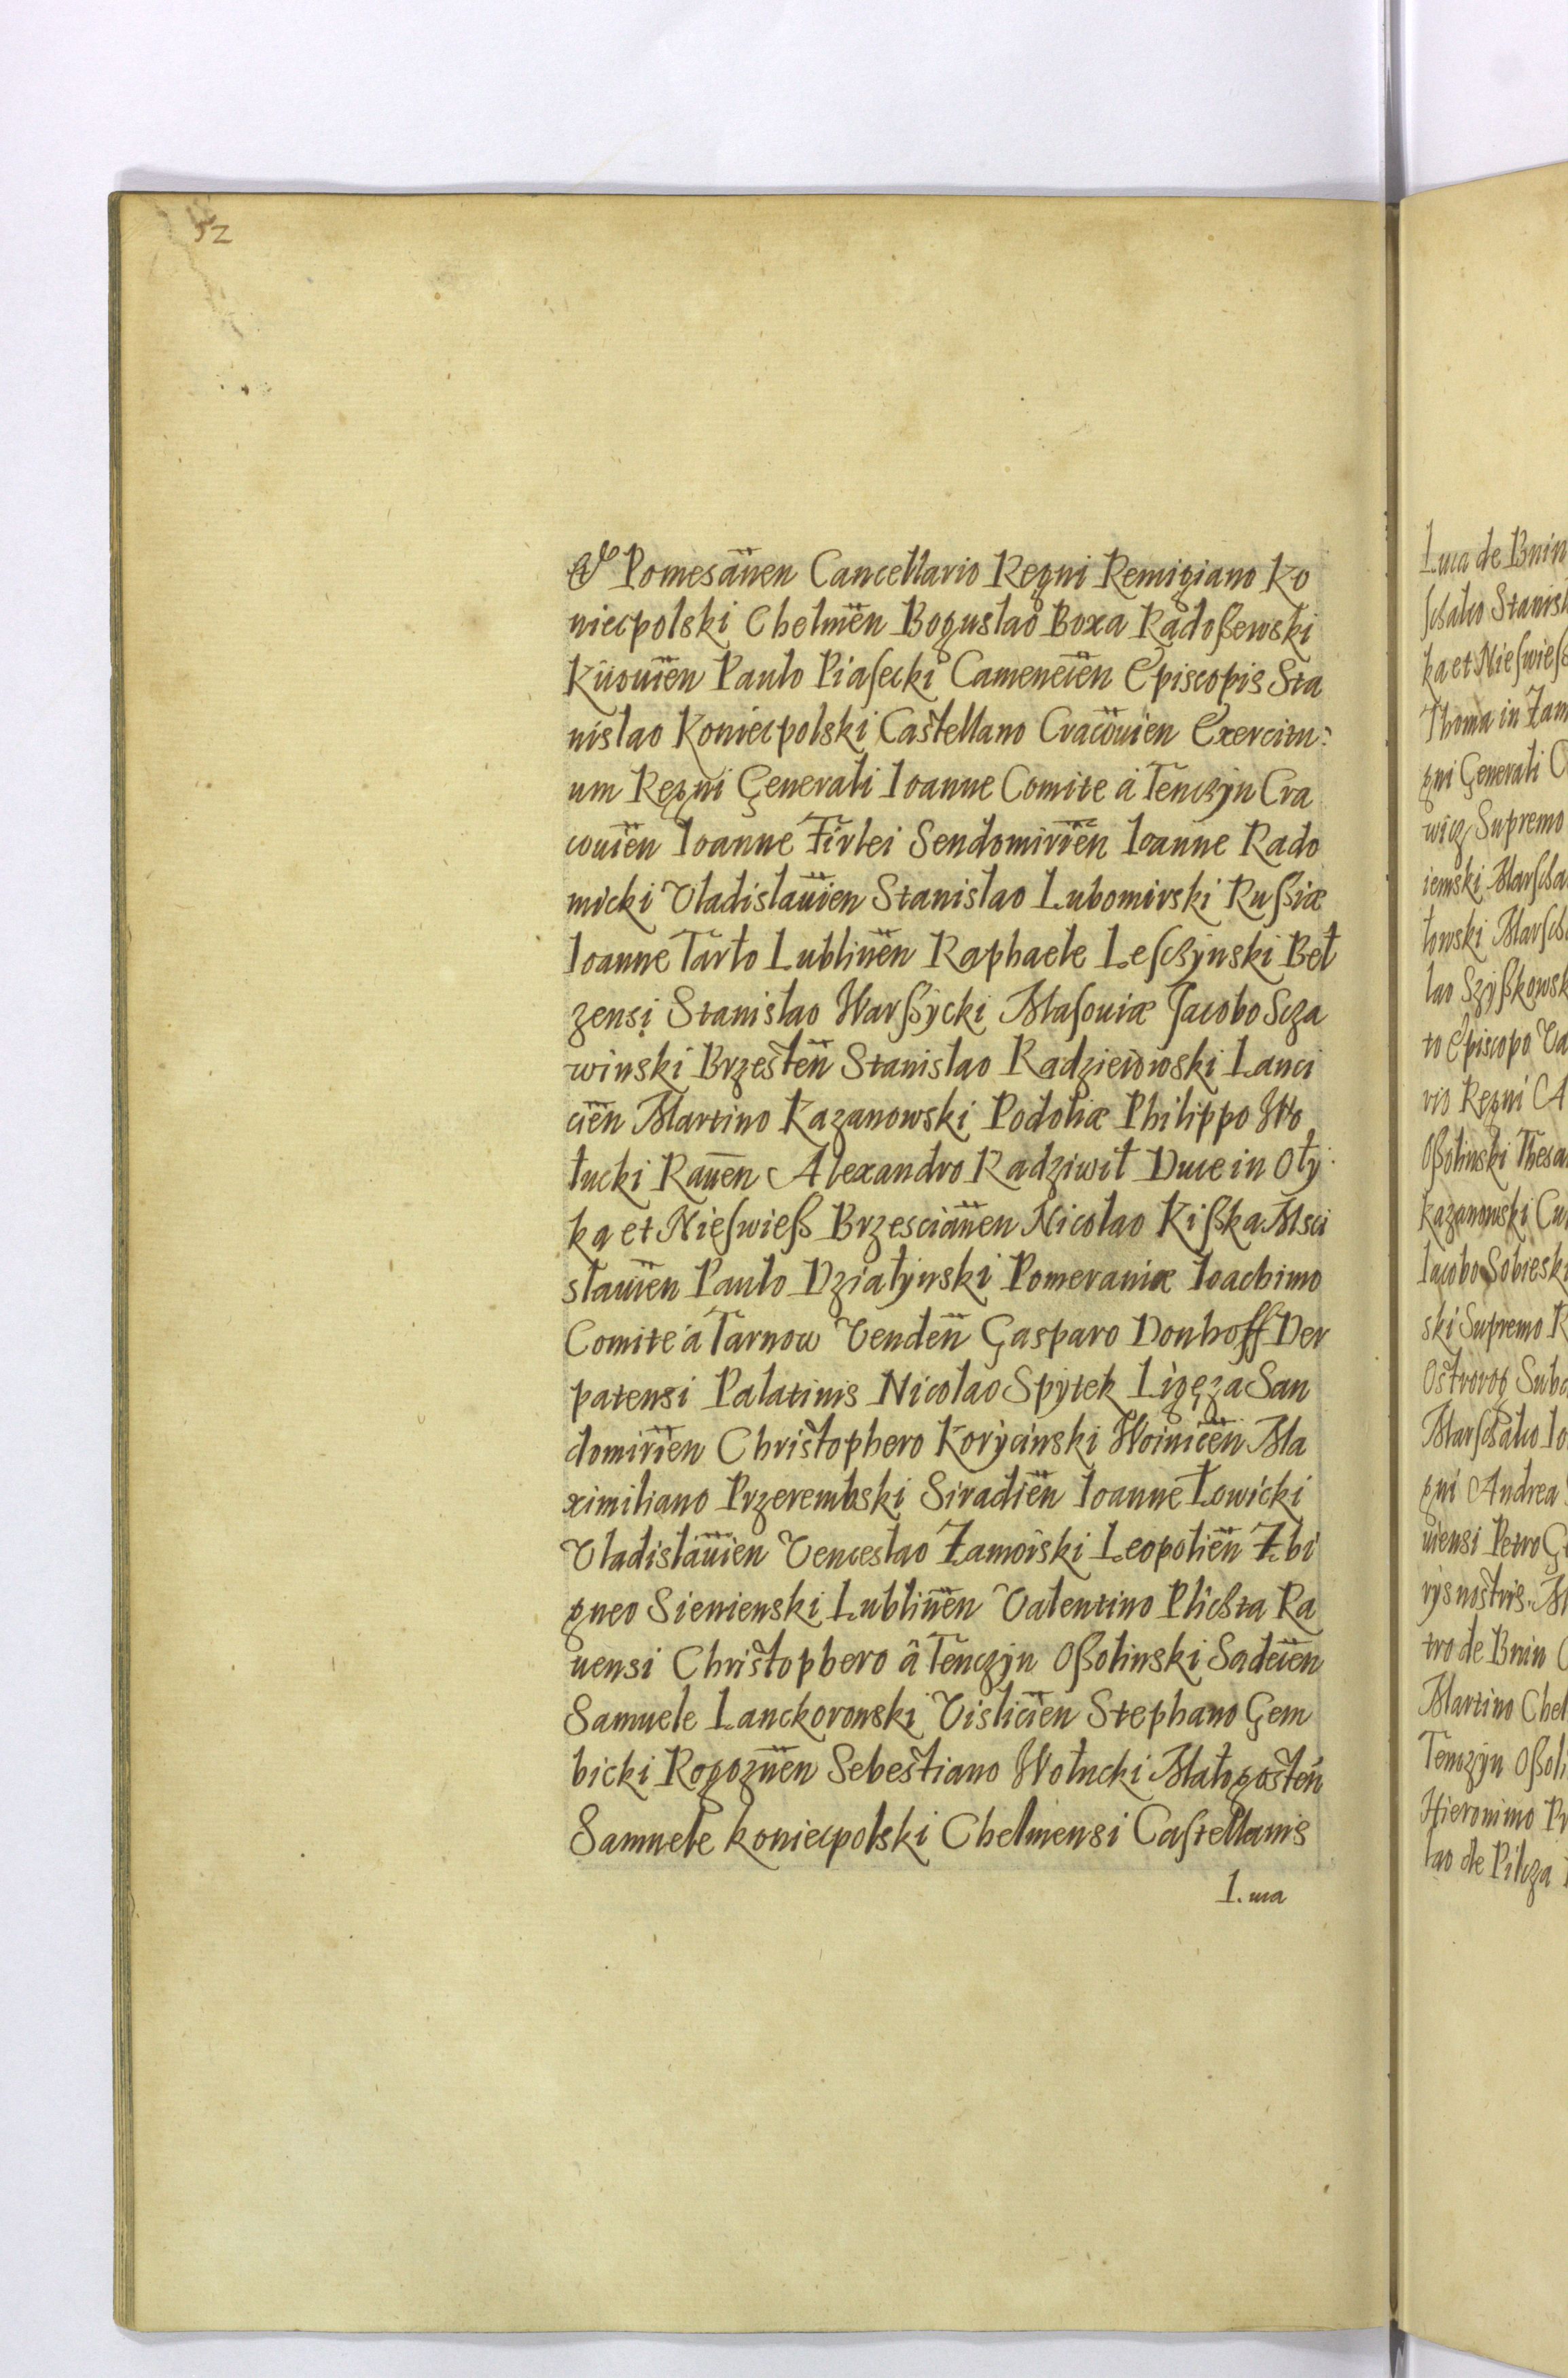 52
& Pomesan̄en Cancellario Regni Remigiano Ko
niecpolski Chelmēn Boguslao Boxa Radoßewski
Kiiouiēn Paulo Piaſecki Cameneciēn Episcopis Sta
nislao Koniecpolski Castellano Cracōuien Exercitu:
um Regni Generali Ioanne Comite á Tenczÿn Cra
couiēn Ioanne Firlei Sendomiriēn Ioanne Rado
micki Vladislaūien Stanislao Lubomirski Rußiæ
Ioanne Tarło Lublin̄en Raphaele Leſczÿnski Beł
zensi Stanislao Warßÿcki Maſouiæ Jacobo Scza
winski Brzesten̄ Stanislao Radzieiowski Lanci
ciēn Martino Kazanowski Podoliæ Philippo Wo
łucki Rauēn Alexandro Radziwił Duce in Ołÿ
ka et Nieſwieß Brzescian̄en Nicolao Kißka Msci
slauiēn Paulo Działÿnski Pomeraniæ Ioachimo
Comite á Tarnow Venden̄ Gasparo Donhoff Der
patensi Palatinis Nicolao Spÿtek Ligęza San
domiriēn Christophero Korÿcinski Woinicēn Ma
ximiliano Przerembski Siradiēn Ioanne Łowicki
Vladislāuien Venceslao Zamoiski Leopoliēn Zbi
gneo Sienienski Lublin̄en Valentino Plichta Ra
uensi Christophero â Tenczÿn Oßolinski Sadeciēn
Samuele Lanckoronski Vislicīen Stephano Gem
bicki Rogozn̄en Sebestiano Wołucki Małogosten̄
Samuele Koniecpolski Chelmensi Caſtellanis
Luca
Luca de Bnin
ſchalco Stanisl
ka et Nieſwieſ
Thoma in Zam
gni Generali C
wicz Supremo
iemski Marſcha
łowski Marſch
lao Szÿßkowsk
to Episcopo Va
rio Regni A
Oßolinski Thesa
Kazanowski Cu
Iacobo Sobieski
ski Supremo R
Ostrorog Subd
Marſchalco Io
gni Andrea
uiensi Petro G
rÿs nostris. M
tro de Bnin C
Martino Chel
Tenczÿn Oßoli
Hieronimo Pr
lao de Pilcza